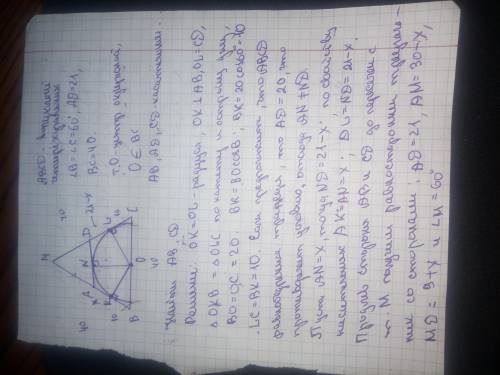 ABCD - выпуклый
четырёхугольник
∠B = ∠C = 60°, AD = 21,
BC = 40.
т. O - центр окружности,
O ∈ BC
AB, AD, CD - касательные.
Найти AB, CD
Решение: OK = OL - радиусы, OK ⊥ AB, OL ⊥ CD,
△OKB = △OLC по катету и острому углу,
BO = OC = 20; BK = BO cos B; BK = 20 cos 60° = 10
LC = BK = 10. Если предположить, что ABCD
равнобедренная трапеция, то AD = 20, что
противоречит условию, отсюда AN ≠ ND.
Пусть AN = x, тогда ND = 21 - x. По свойству
касательных AK = AN = x; DL = ND = 21 - x.
Продлив стороны AB и CD до пересечения с
т. M получим равносторонний треуголь-
ник со сторонами: AD = 21, AM = 30 - x,
MD = 9 + x и ∠M = 60°
M
40
A
N
D
21-x
x
K
L
10
10
B
O
C
40